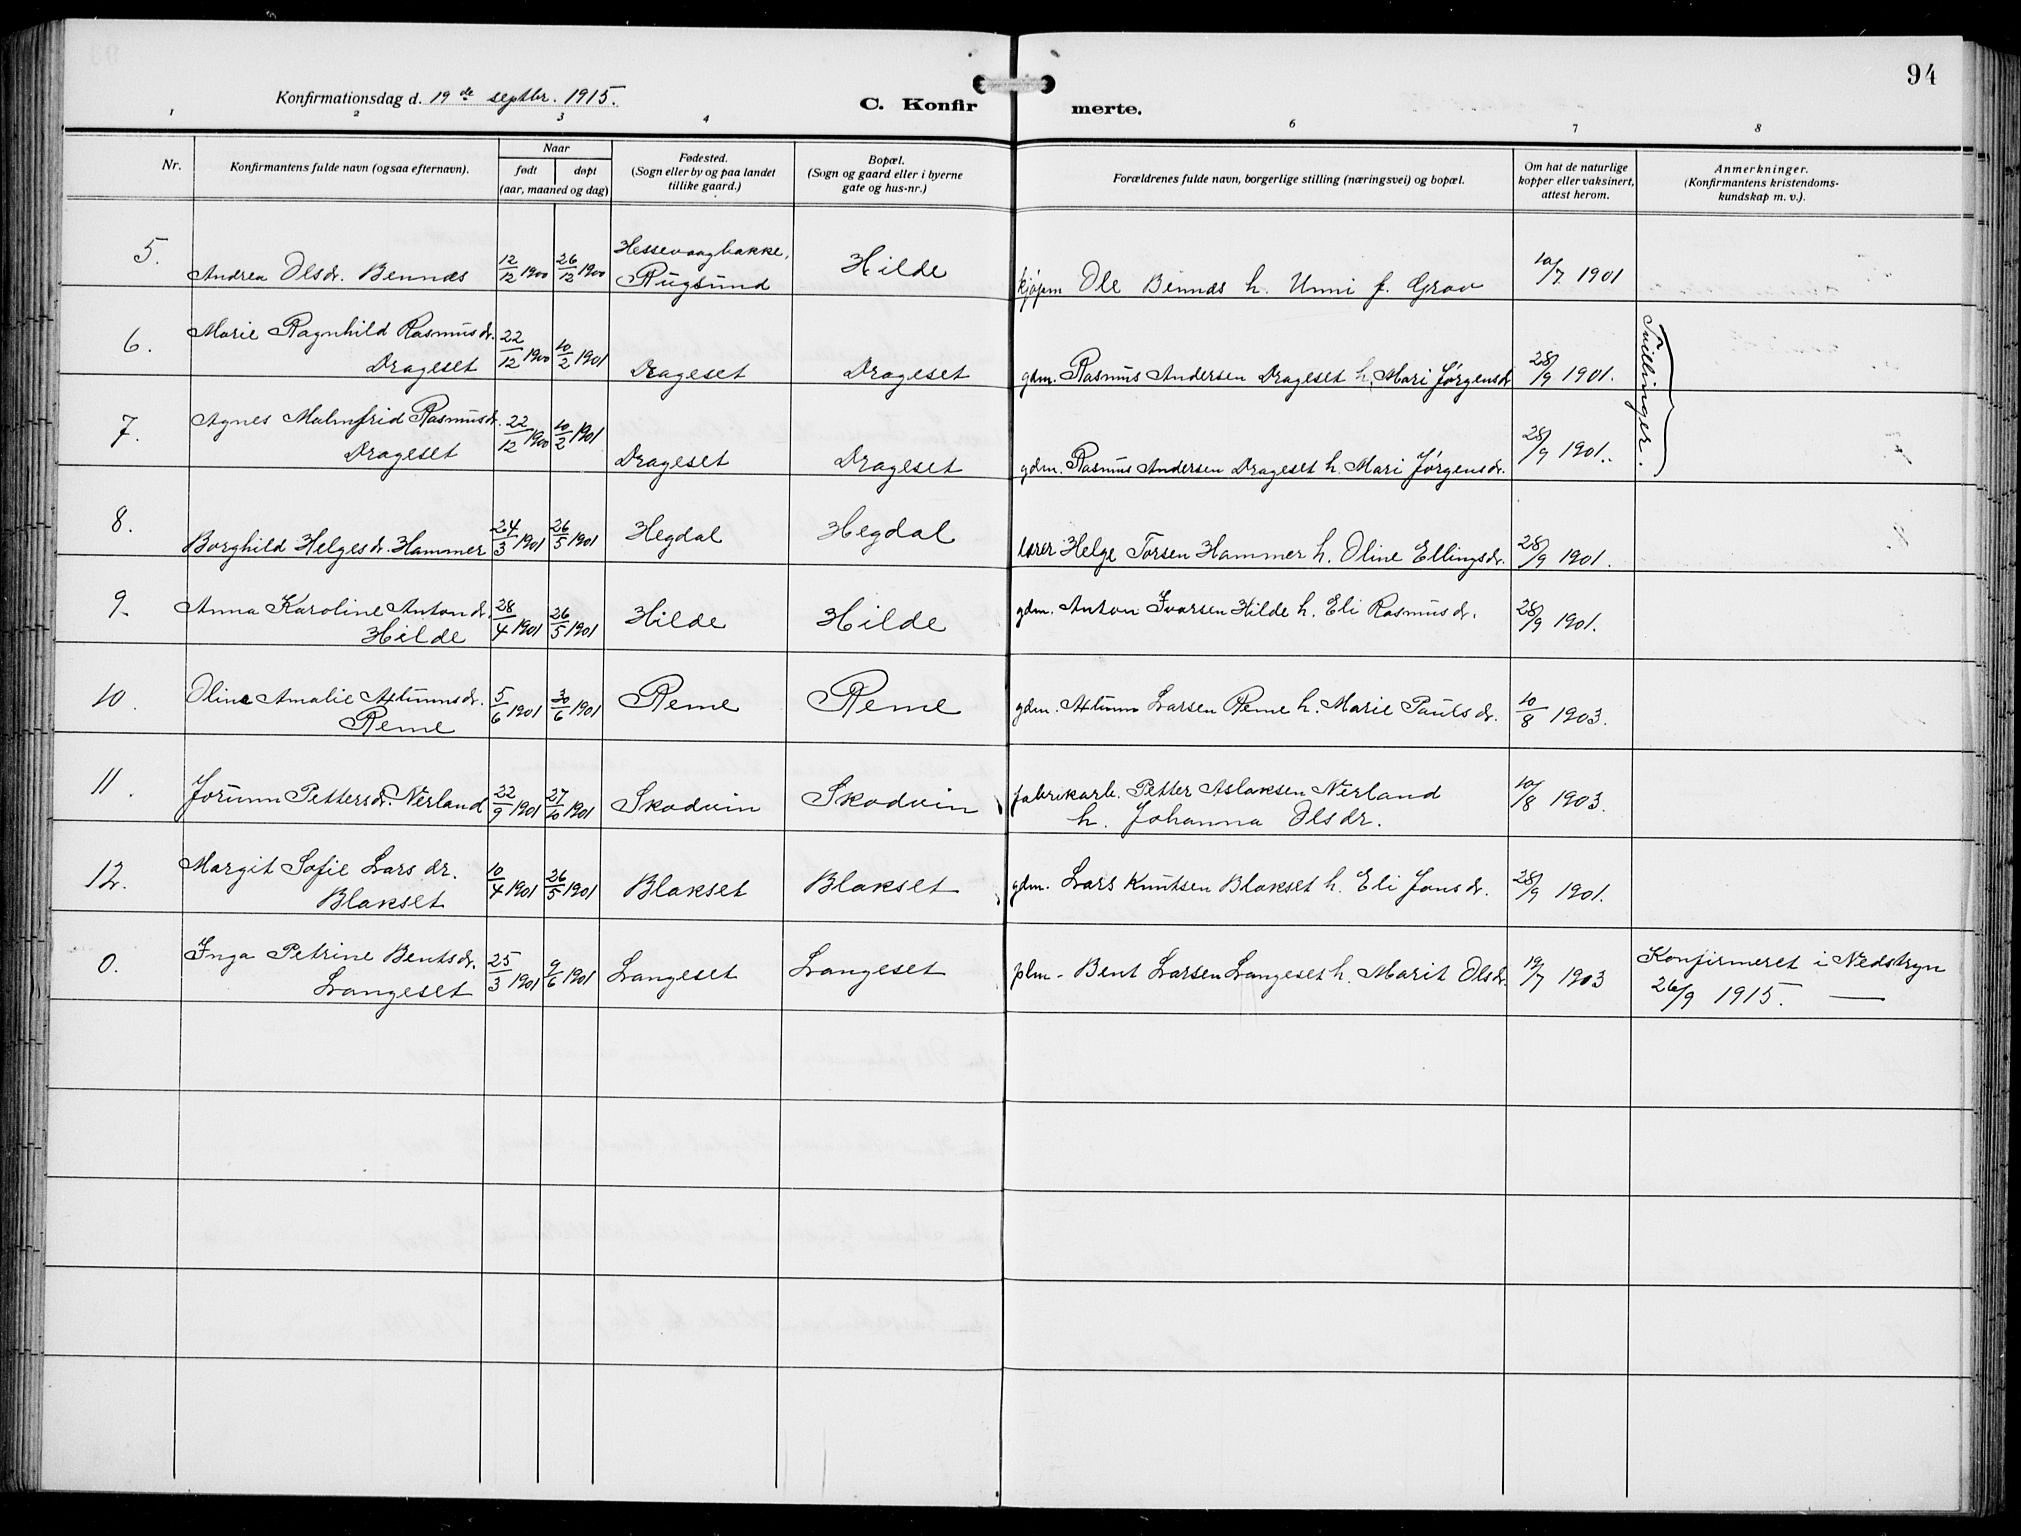 94
Konfirmationsdag d. 19de septbr. 1915.
C. Konfir merte.
1 2 3 4 6 7 8
Nr. Konfirmantens fulde navn (ogsaa efternavn). Naar født døpt (aar, maaned og dag) Fødested. (Sogn eller by og paa landet tillike gaard.) Bopæl. (Sogn og gaard eller i byerne gate og hus-nr.) Forældrenes fulde navn, borgerlige stilling (næringsvei) og bopæl. Om hat de naturlige kopper eller vaksinert, attest herom. Anmerkninger. (Konfirmantens kristendoms-kundskap m. v.).
5. Andrea Olsdr. Bennæs 12/12 1900 26/12 1900 Hessevaagbakke, Rugsund Hilde kjøpm Ole Bennæs h. Unni f. Grov 10/7 1901
6. Marie Ragnhild Rasmusdr. Drageset 22/12 1900 10/2 1901 Drageset Drageset gdm. Rasmus Andersen Drageset h. Mari Jørgensdr 28/9 1901. Tvillinger.
7. Agnes Malmfrid Rasmusdr. Drageset 22/12 1900 10/2 1901 Drageset Drageset gdm. Rasmus Andersen Drageset h. Mari Jørgensdr. 28/9 1901.
8. Borghild Helgesdr. Hammer 24/3 1901 26/5 1901 Hegdal Hegdal lærer Helge Torsen Hammer h. Oline Ellingsdr. 28/9 1901.
9. Anna Karoline Antondr. Hilde 28/4 1901 26/5 1901 Hilde Hilde gdm. Anton Ivarsen Hilde h. Eli Rasmusdr. 28/9 1901.
10. Oline Amalie Astumsdr. Reme 5/6 1901 30/6 1901 Reme Reme gdm. Larsen Reme h. Marie Paulsdr. 10/8 1903.
11. Jorunn Pettersdr. Nerland 22/9 1901 27/10 1901 Skodvin Skodvin fabrikarb. Petter Aslaksen Nerland h. Johanna Olsdr. 10/8 1903.
12. Margit Sofie Larsdr. Blakset 10/4 1901 26/5 1901 Blakset Blakset gdm. Lars Knutsen Blakset h. Eli Jonsdr. 28/9 1901.
0. Inga Petrine Bentsdr. Langeset 25/3 1901 9/6 1901 Langeset Langeset plm - Bent Larsen Langeset h. Marit Olsdr. 19/7 1903 Konfirmeret i Nedstryn 26/9 1915. —